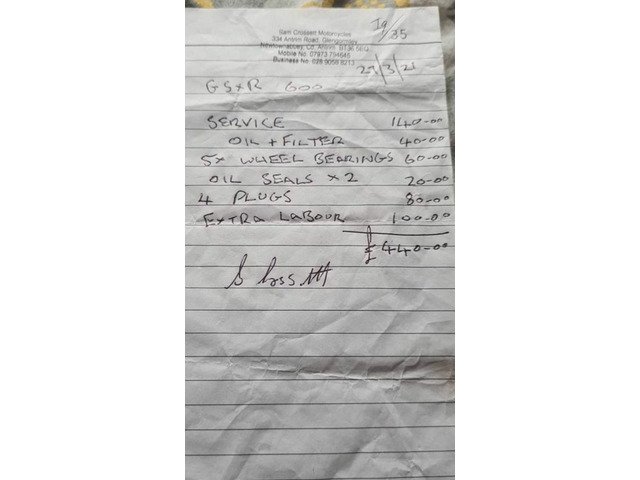 Sam Crossett Motorcycles
334 Antrim Road, Glengormley
Newtownabbey, Co. Antrim BT36 5EG
Mobile No. 07973 794645
Business No. 028 9058 8213
19/35
27/3/21
GSXR 600
SERVICE 140-00
OIL + FILTER 40-00
5x WHEEL BEARINGS 60-00
OIL SEALS x 2 20-00
4 PLUGS 80-00
EXTRA LABOUR 100-00
£440-00